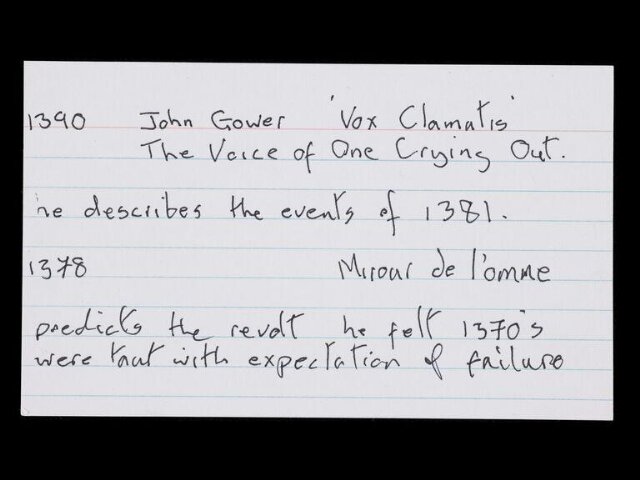 1390 John Gower 'Vox Clamatis'
The Voice of One Crying Out.
he describes the events of 1381.
1378 Mirour de l'omme
predicts the revolt he felt 1370's
were taut with expectation of failure